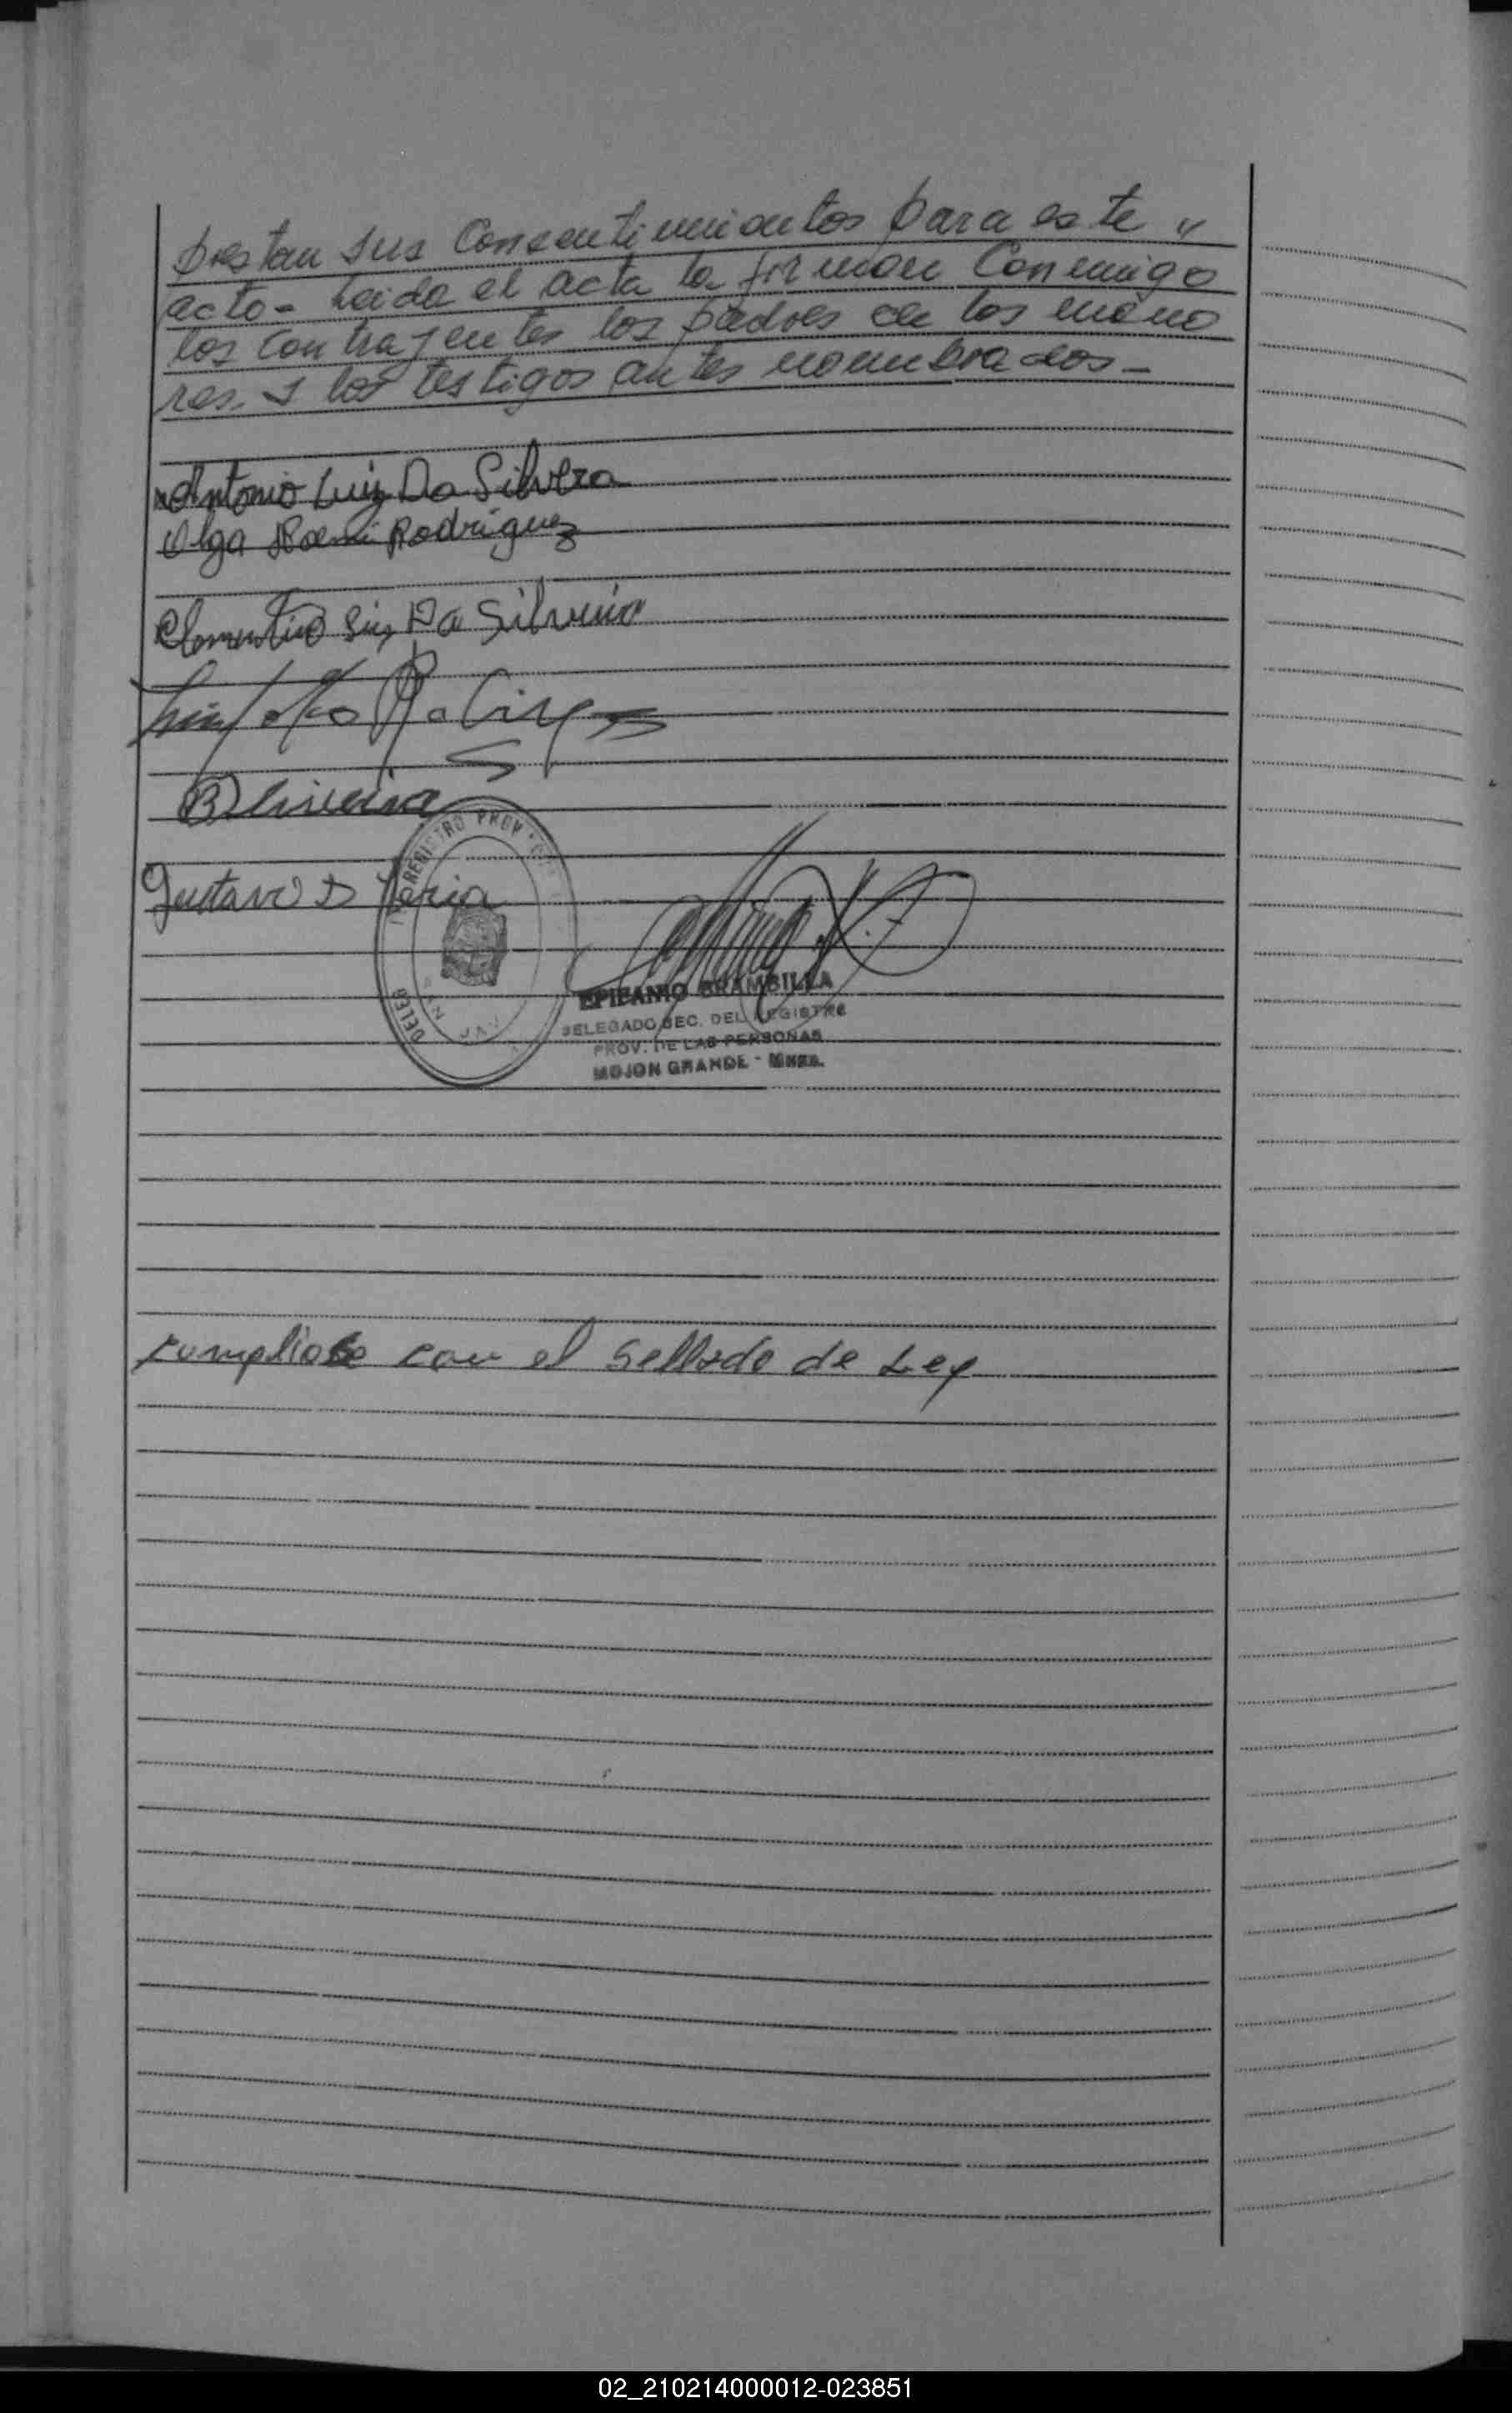 prestan sus Consentimientos para este "
acto - Leida el acta la firman Conmigo
los Contrajentes los padres de los meno
res. y los testigos antes nombrados -
Antonio Luiz Da Silvera
Olga Noemi Rodriguez
Clementino Luiz Da Silveira
Oliveira
Gustavo D
REGISTRO PROV
DELEG
EPIFANIO BRAMBILLA
DELEGADO SEC. DEL REGISTRO
PROV. DE LAS PERSONAS
MOJON GRANDE - Mnes.
Cumpliose con el Sellado de Ley
02_210214000012-023851